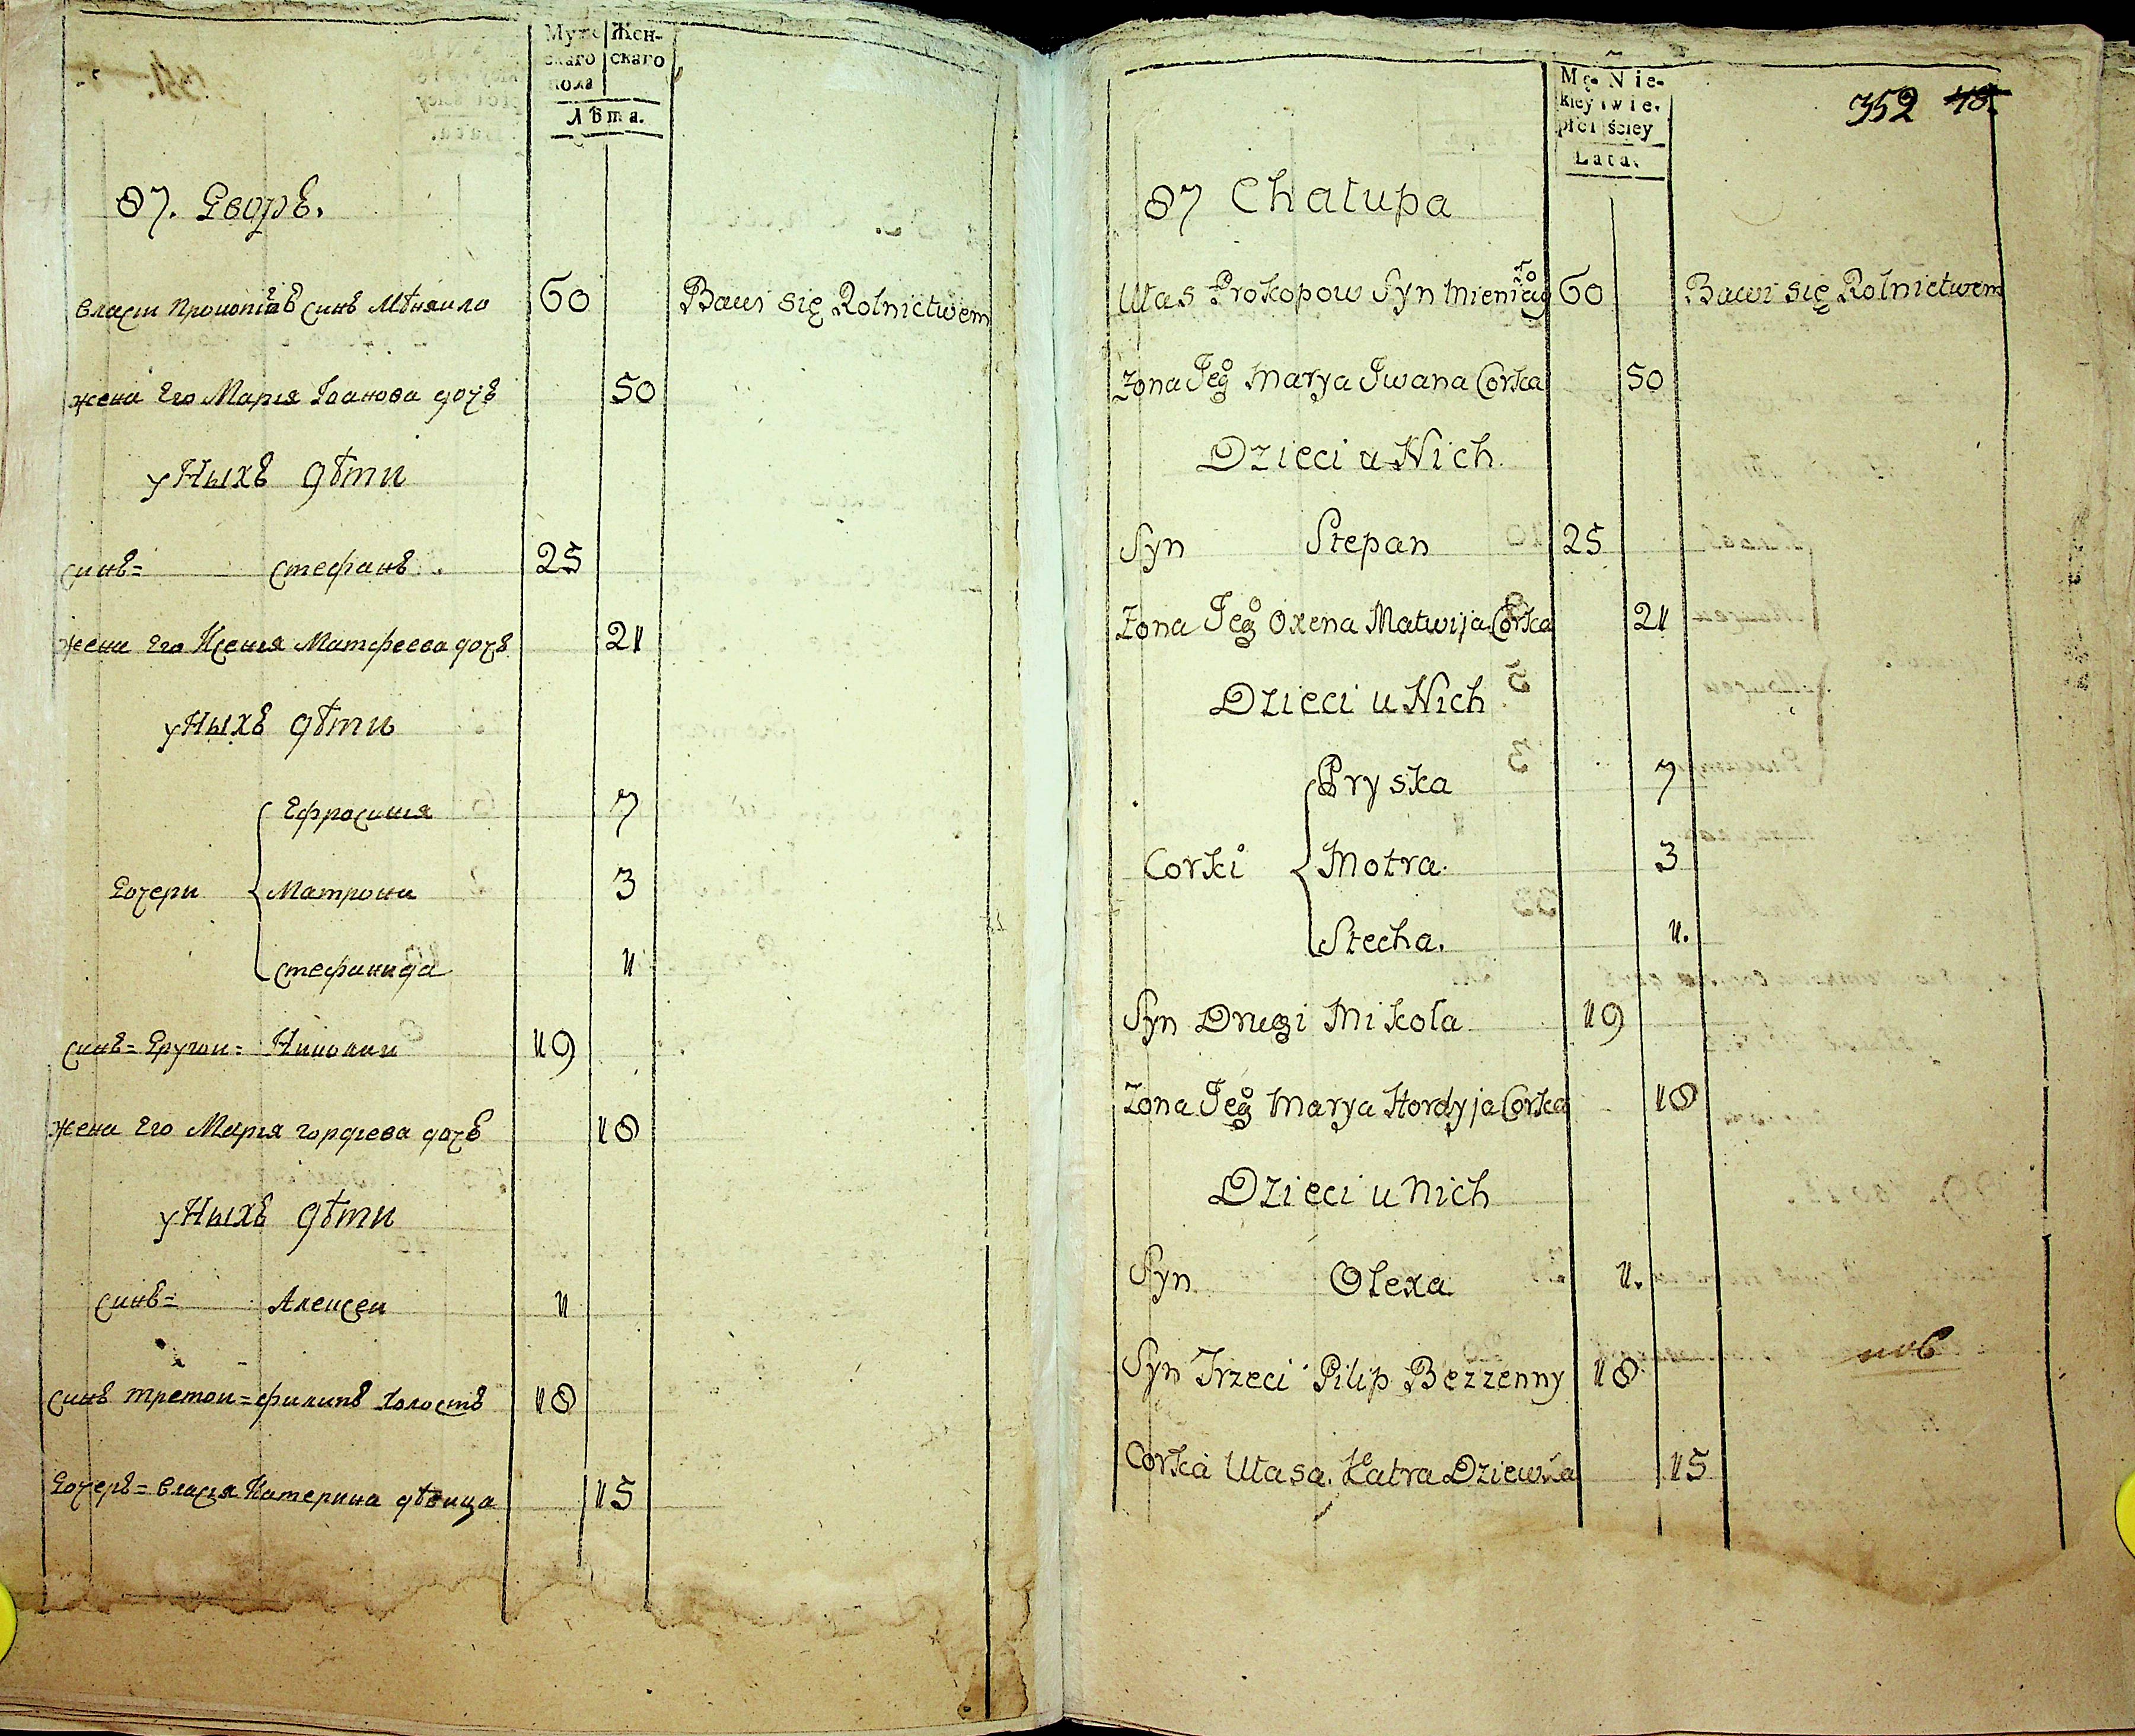 Муже Жен-
скаго скаго
пола
Лѣта.
87. Дворъ.
Власіи Прокопіевъ синъ Мѣняило 60 Bawi się Rolnictwem
жена Его Марія Іоанова дочъ 50
у Ныхъ дѣти
синъ= Стефанъ 25
жена Его Ксенія Матфеева дочъ 21
у Ныхъ дѣти
Ефросинія 7
Дочери Матрона 3
Стефанида 1
синъ= Другои= Николаи 19
жена Его Марія гордіева дочъ 18
у Ныхъ дѣти
синъ= Алексеи 1
синъ третои= филипъ холостъ 18
Дочеръ= власія Катерина дѣвица 15
352 48.
Mę- Nie-
kiey wie-
płci ściey
Lata.
87 Chałupa
Ułas Prokopow Syn 60 Bawi się Rolnictwem
Zona Jeg̊ Marya Jwana Corka 50
Dzieci u Nich
Syn Stepan 25
Zona Jeg̊ Oxena Matwija Corka 21
Dzieci u Nich
Pryska 7
Corki Motra 3
Stecha. 1.
Syn Drugi Mikoła 19
Zona Jeg̊ Marya Hordyja Corka 18
Dzieci u Nich
Syn Olexa 1.
Syn Trzeci Pilip Bezzenny 18
Corka Ułasa Katra Dziewka 15